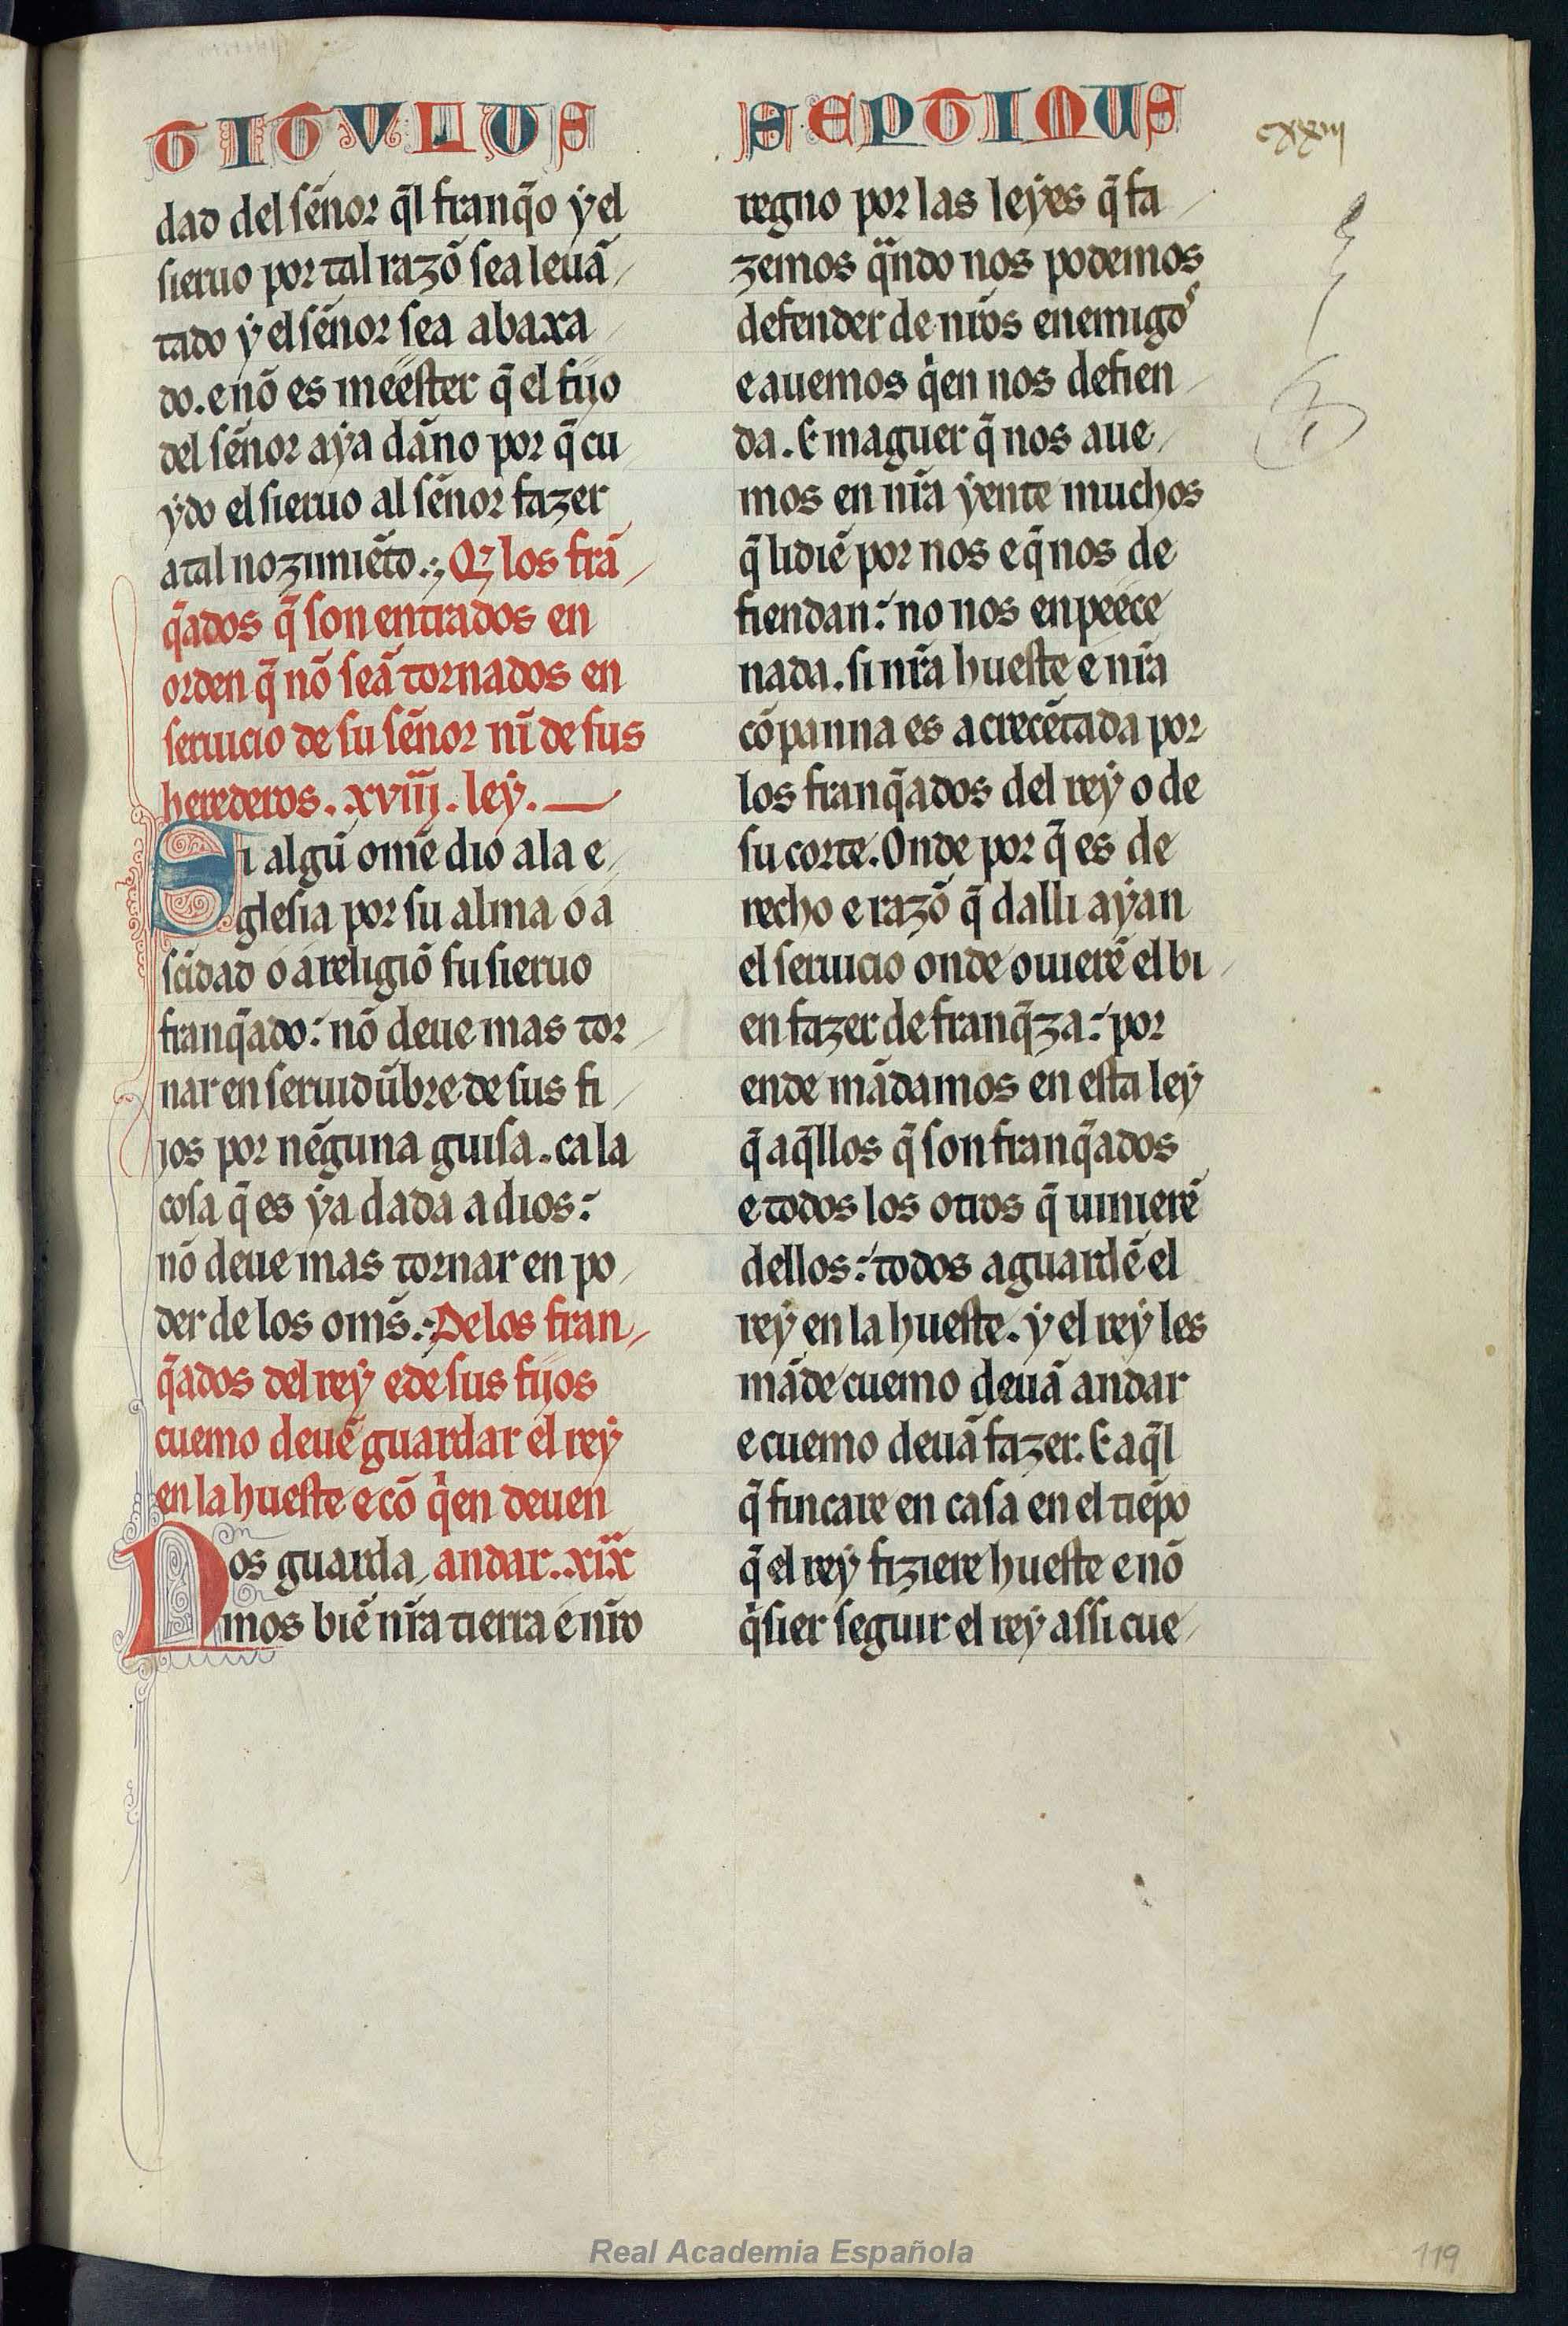 TITVLUS SEPTIMUS
cxxiij
dad del señor q̃l franq̃o ẏ el
sieruo por tal razõ sea leuã
tado ẏ el señor sea abaxa
do. e nõ es meester q̃ el fijo
del señor aẏa dãno por q̃ cu
ẏdo el sieruo al señor fazer
atal nozimiẽto. Q̃ los frã
q̃ados q̃ son entrados en
orden q̃ nõ seã tornados en
seruicio de su señor nĩ de sus
herederos. xviij. leẏ.
Si algũ om̃e dio ala e
glesia por su alma o a
sc̃idad o a religiõ su sieruo
franq̃ado: nõ deue mas tor
nar en seruidũbre de sus fi
jos por nẽguna guisa. ca la
cosa q̃ es ẏa dada a dios:
nõ deue mas tornar en po
der de los om̃s. De los fran
q̃ados del reẏ e de sus fijos
cuemo deuẽ guardar el reẏ
en la hueste e cõ q̃en deuen
Nos guarda andar. xix
mos biẽ nr̃a tierra e nr̃o
regno por las leẏes q̃ fa
zemos q̃ndo nos podemos
defender de nr̃os enemigos
e auemos q̃en nos defien
da. E maguer q̃ nos aue
mos en nr̃a ẏente muchos
q̃ lidiẽ por nos e q̃ nos de
fiendan: no nos enpeece
nada. si nr̃a hueste e nr̃a
cõpanna es acrecẽtada por
los franq̃ados del reẏ o de
su corte. Onde por q̃ es de
recho e razõ q̃ dalli aẏan
el seruicio onde ouierẽ el bi
en fazer de franq̃za: por
ende mãdamos en esta leẏ
q̃ aq̃llos q̃ son franq̃ados
e todos los otros q̃ uinierẽ
dellos: todos aguardẽ el
reẏ en la hueste. ẏ el reẏ les
mãde cuemo deuã andar
e cuemo deuã fazer. E aq̃l
q̃ fincare en casa en el tiẽpo
q̃ el reẏ fiziere hueste e nõ
q̃sier seguir el reẏ assi cue
Real Academia Española
119